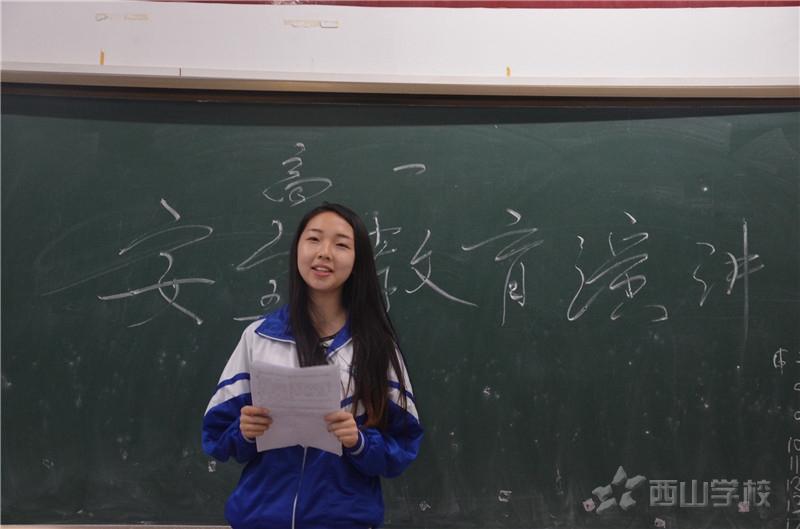 高一
安全教育演讲
西山学校